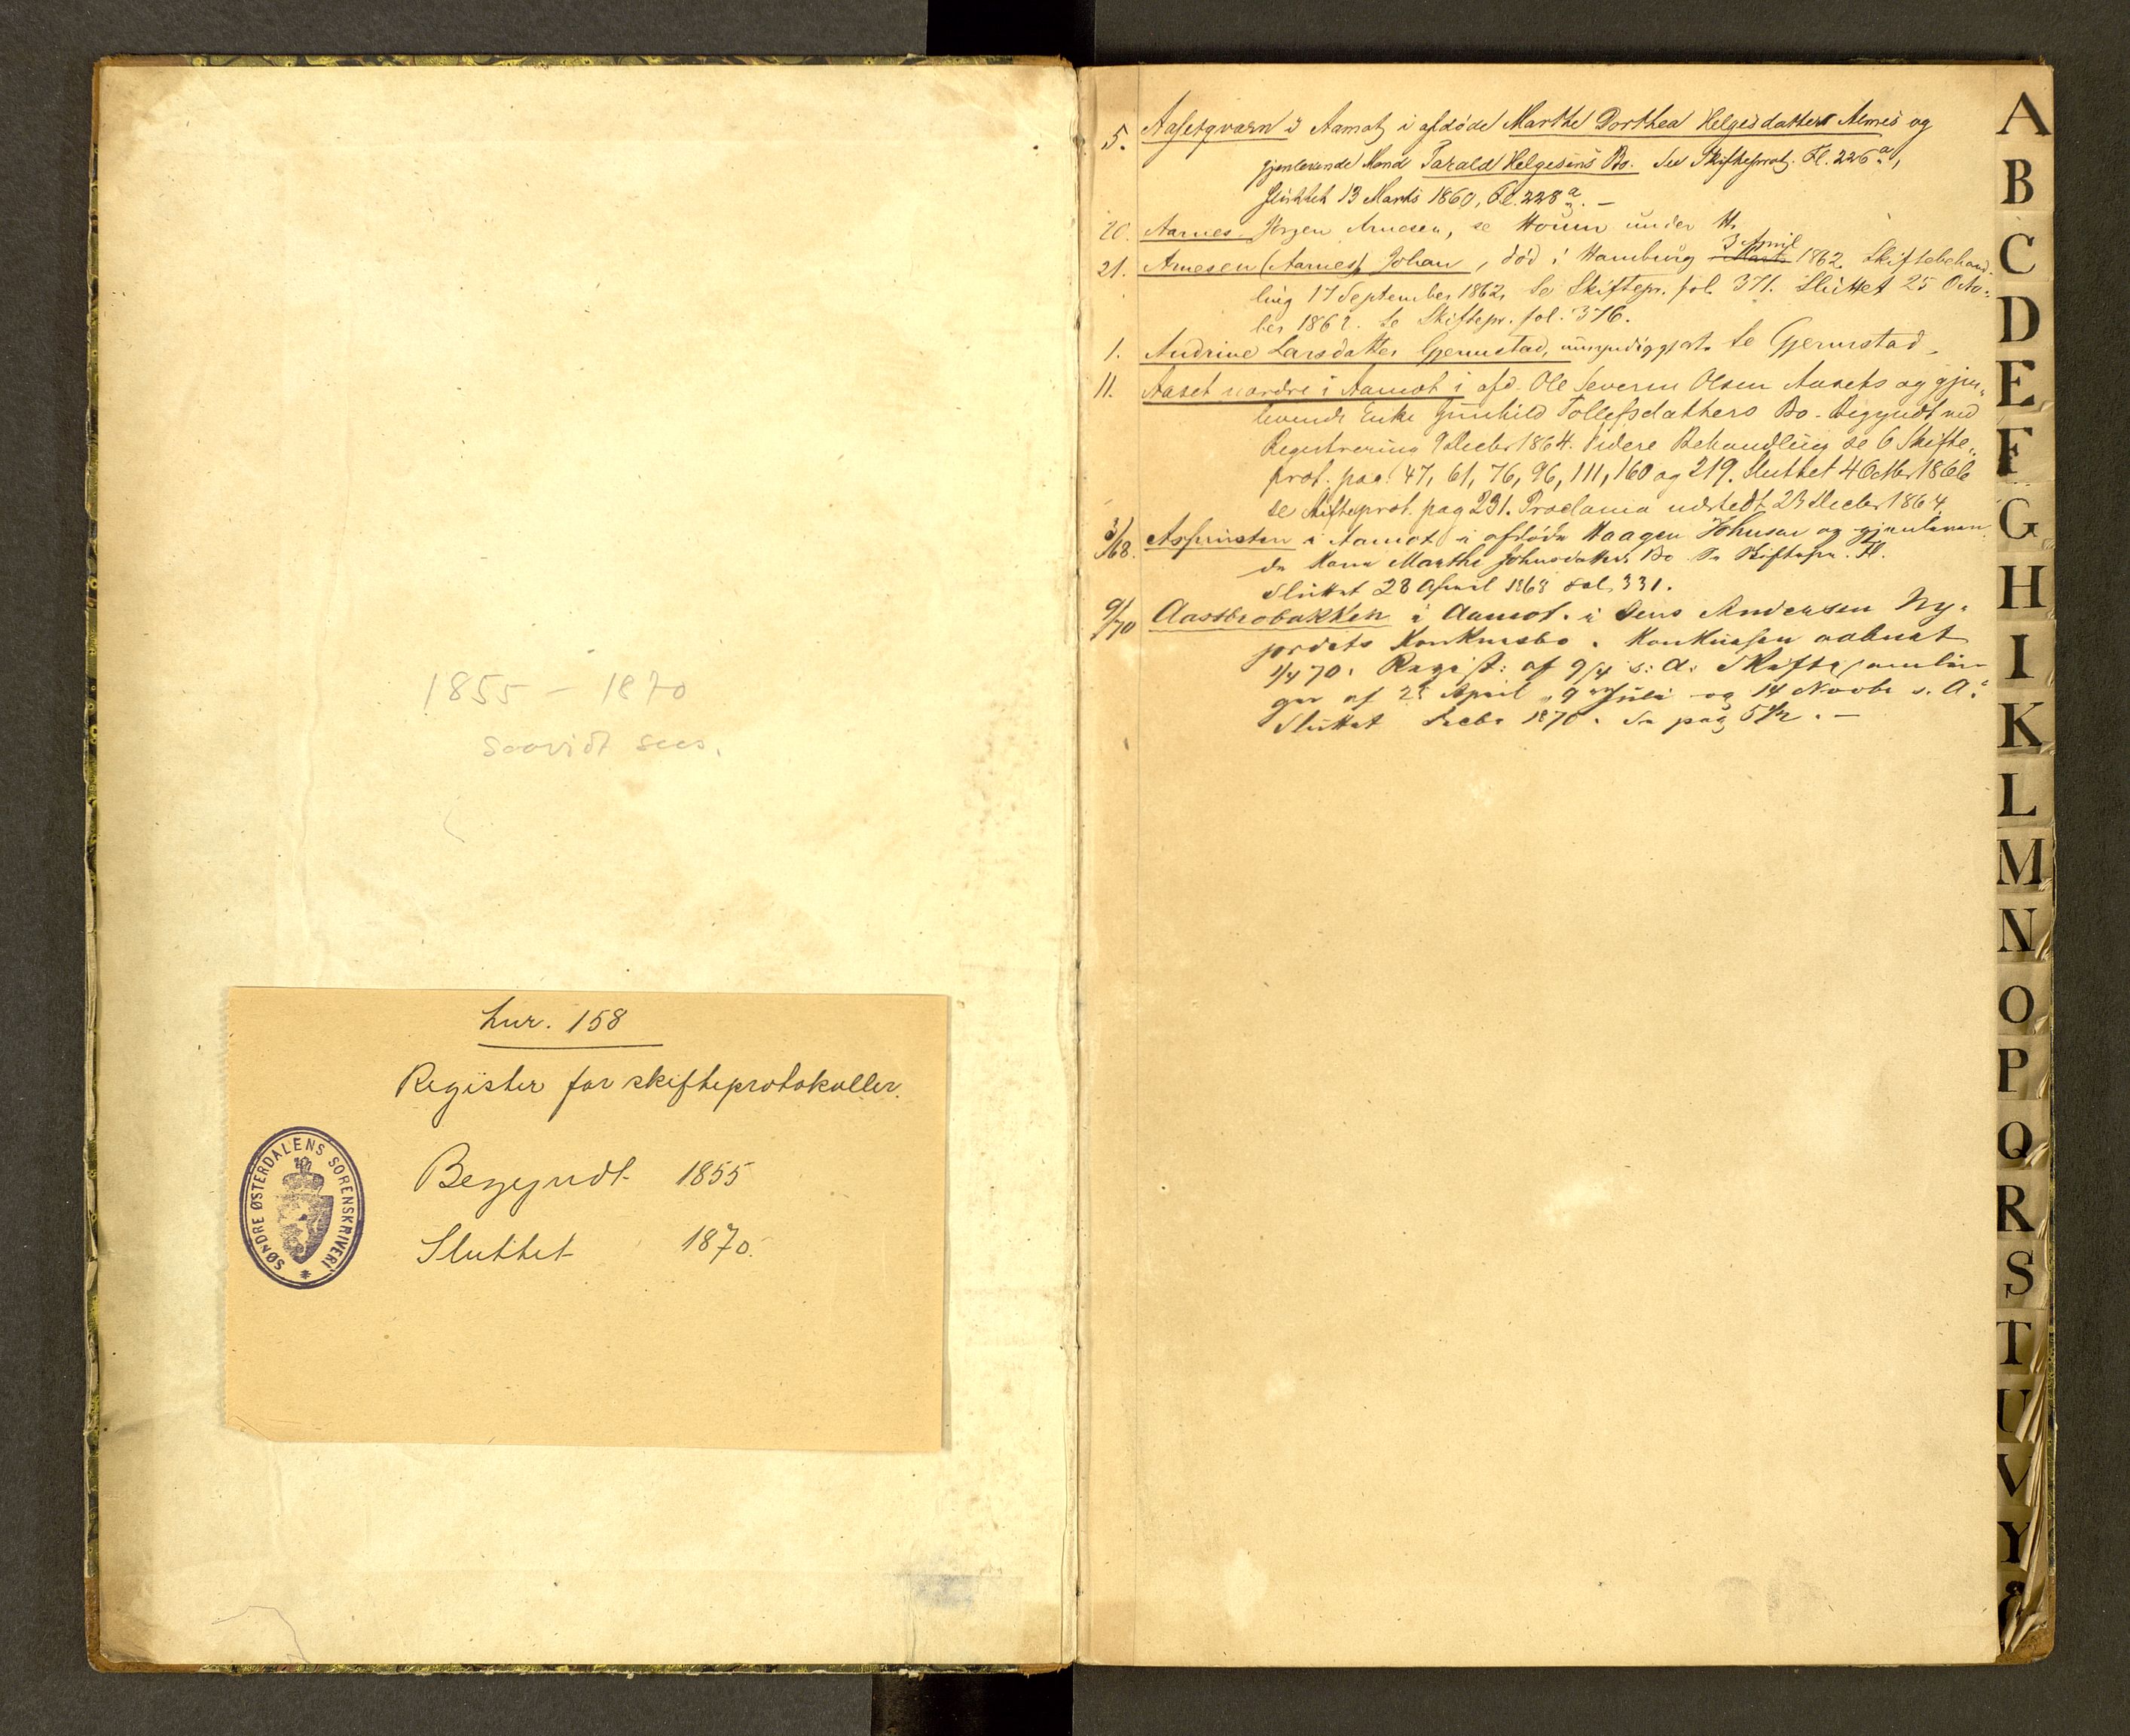 1855 – 1870
saavidt sees.
Lnr. 158
Register for skifteprotokoller.
Begyndt 1855
Sluttet 1870.
SØNDRE ØSTERDALENS SORENSKRIVERI
5. Aasetqværn i Aamot, i afdøde Marthe Dorthea Helgesdatters Alme's og
gjenlevende Mand Tarald Helgesens Bo. See Skifteprot. Fl. 226 a,
sluttet 13 Marts 1860, Fl. 228 a. –
20. Aarnes Jörgen Arnesen, se Moum under M.
21. Arnesen (Aarnes) Johan, död i Hamburg Marts 3 April 1862. Skiftebehand-
ling 17 September 1862, Se Skiftepr. fol. 371. Sluttet 25 Octo-
ber 1862. Se Skiftepr. fol. 376.
1. Andrine Larsdatter Gjermstad, umyndiggjort. Se Gjermstad
11. Aaset nordre i Aamot i afd. Ole Severin Olsen Aasets og gjen-
levende Enke Gunhild Tollefsdatters Bo. Begyndt ved
Registrering 9 Decbr 1864. Videre Behandling se 6 Skifte-
prot. pag. 47, 61, 76, 96, 111, 160 og 219. Sluttet 4 Octbr 1866
se Skifteprot. pag 231. Proclama udstedt 23 Decbr 1864.
3/68. i Aamot i afdöde Haagen Johnsen og gjenleven-
de Kone Marthe Johnsdatters Bo Se Skiftepr. Fl.
Sluttet 28 April 1868 Fol. 331.
9/70 Aasebrobakken i Aamot. i Jens Andersen Ny-
jordets Konkursbo. Konkursen aabnet
1/4 70. Regist: af 9/4 s: A: Skiftesamlin-
ger af 25 April, 9 Juli og 14 Novbr s. A:
Sluttet Decbr 1870. Se pag 542. –
A
B
C
D
E
F
G
H
I
K
L
M
N
O
P
Q
R
S
T
U
V
Y